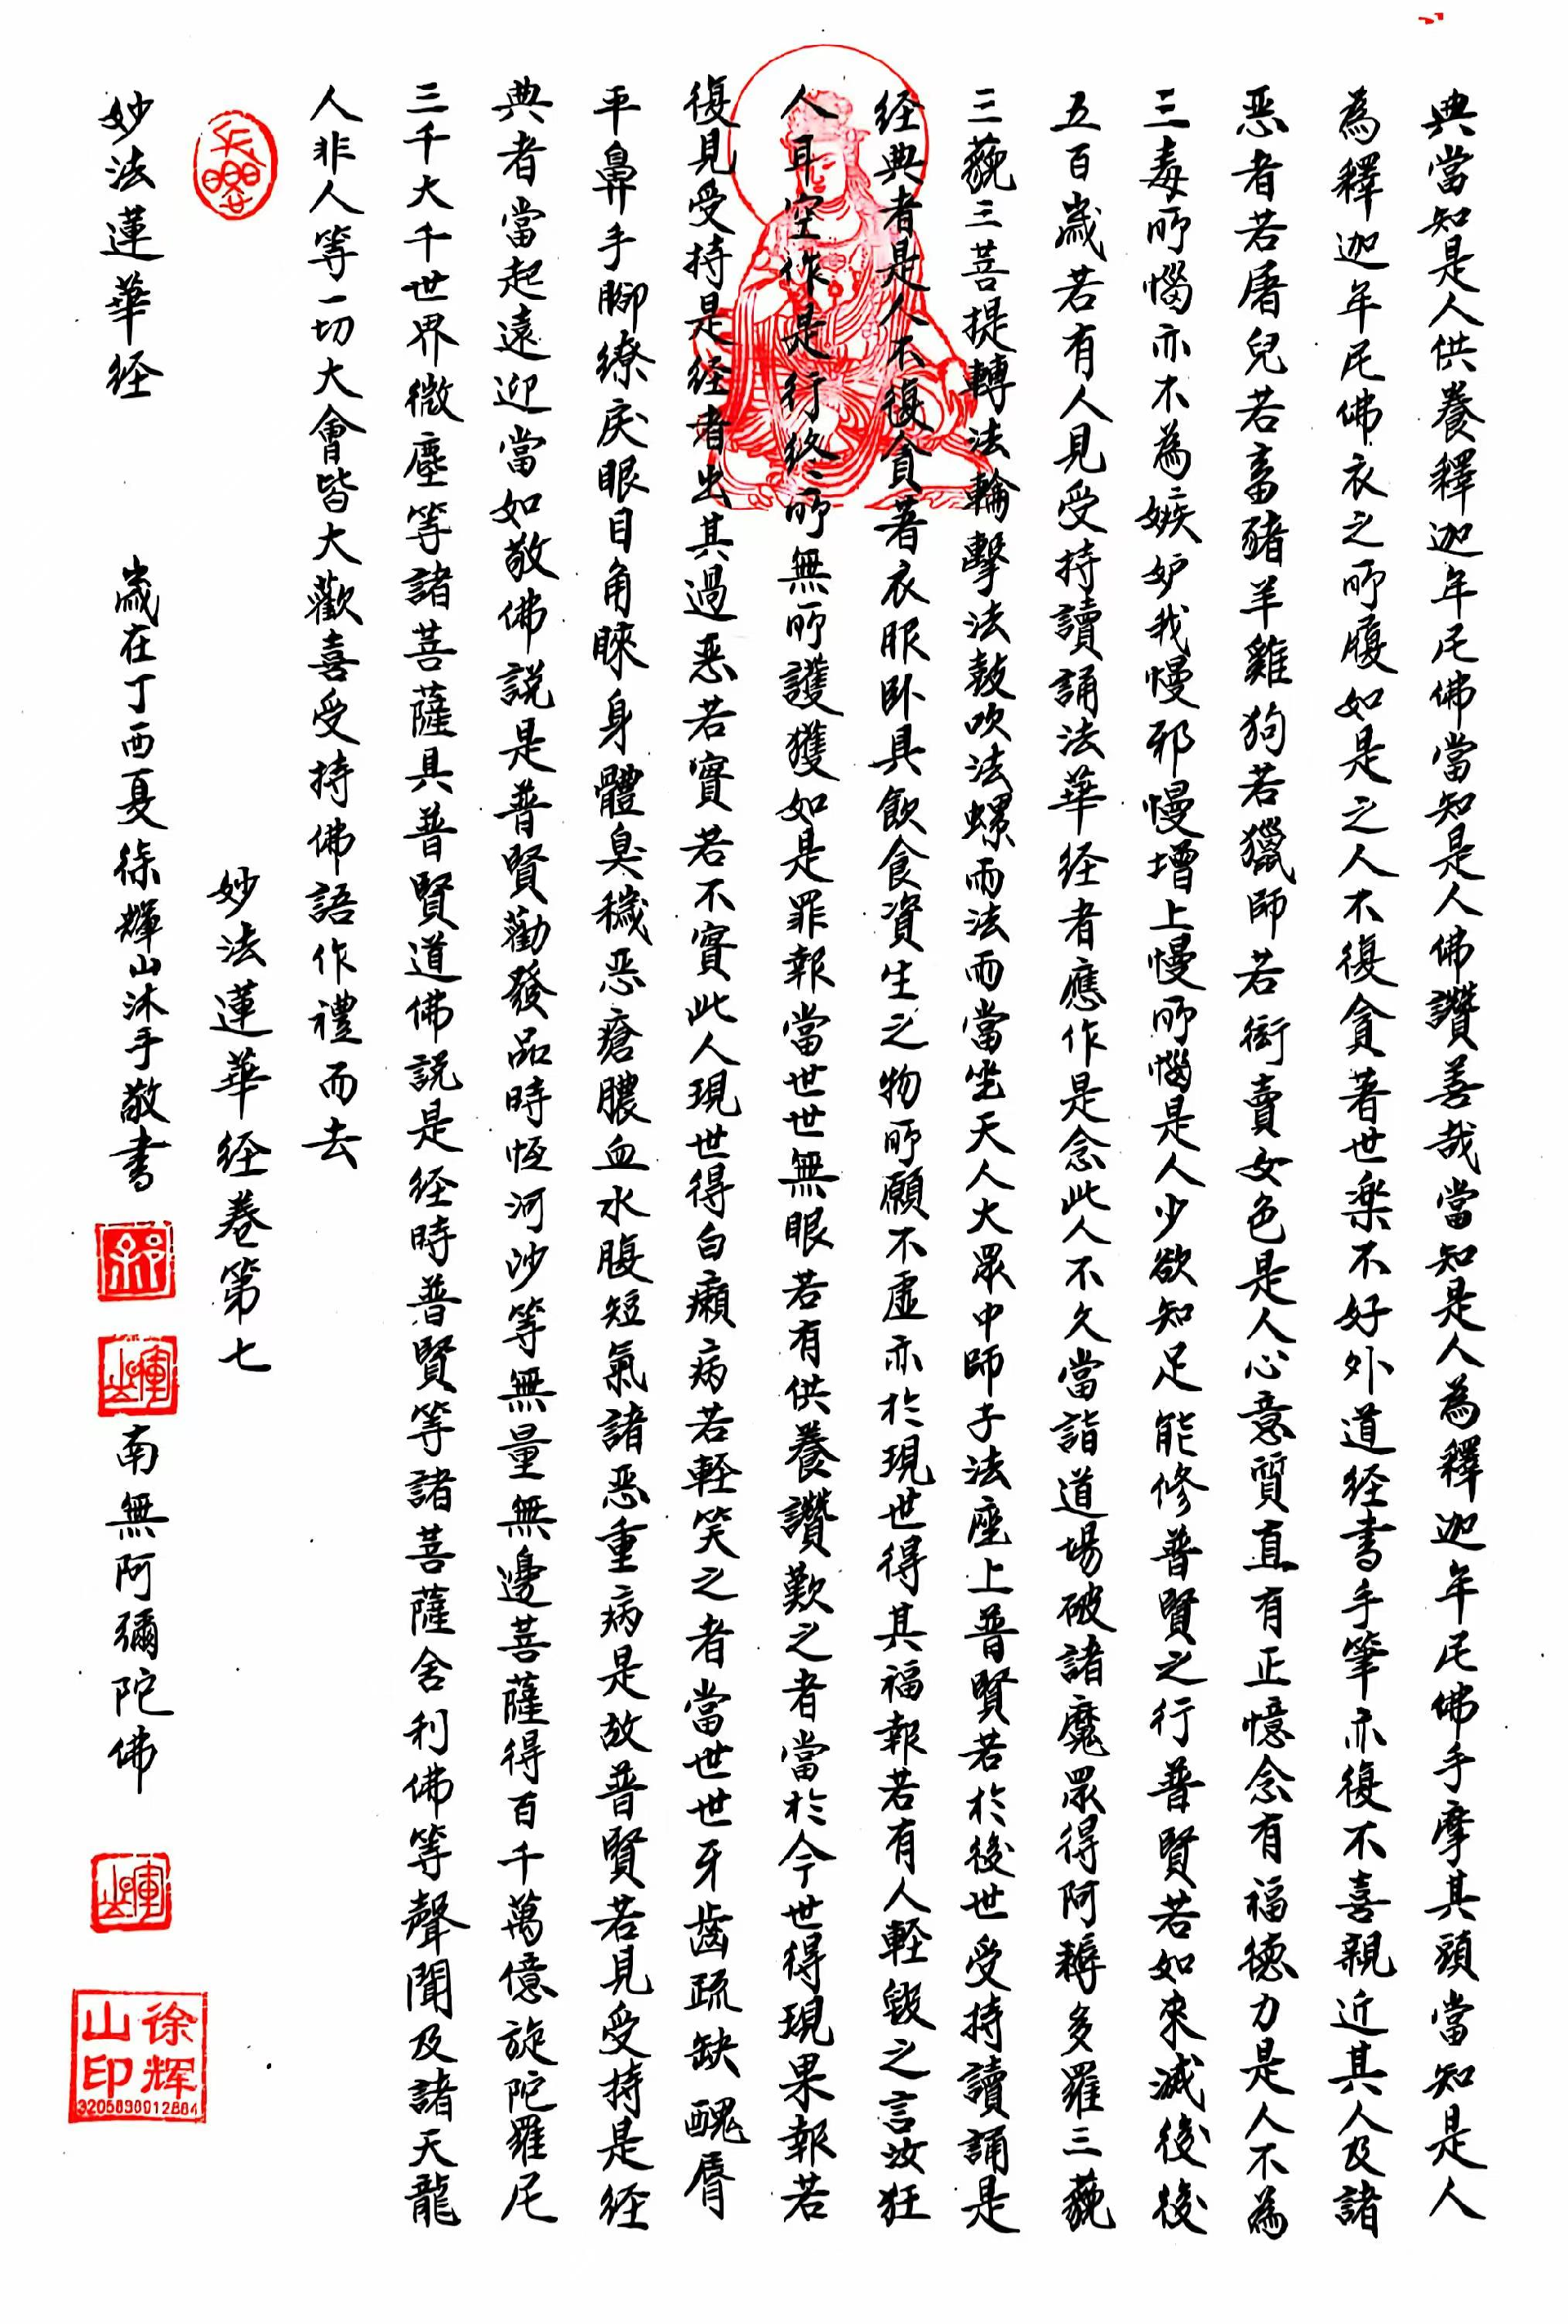 典當知是人供養釋迦牟尼佛當知是人佛讚善哉當知是人為釋迦牟尼佛手摩其頭當知是人
為釋迦牟尼佛衣之所覆如是之人不復貪著世樂不好外道经書手筆亦復不喜親近其人及諸
恶者若屠兒若畜豬羊雞狗若獵師若衒賣女色是人心意質直有正憶念有福德力是人不為
三毒所惱亦不為嫉妒我慢邪慢增上慢所惱是人少欲知足能修普賢之行普賢若如来滅後後
五百歲若有人見受持讀誦法華经者應作是念此人不久當詣道場破諸魔眾得阿耨多羅三藐
三藐三菩提轉法輪擊法鼓吹法螺雨法雨當坐天人大眾中師子法座上普賢若於後世受持讀誦是
经典者是人不復貪著衣服卧具飲食資生之物所願不虛亦於現世得其福報若有人輕毀之言汝狂
人耳空作是行终所無所護獲如是罪報當世世無眼若有供養讚歎之者當於今世得現果報若
復見受持是经者出其過恶若實若不實此人現世得白癩病若輕笑之者當世世牙齒疏缺醜脣
平鼻手腳缭戾眼目角睞身體臭穢恶瘡膿血水腹短氣諸恶重病是故普賢若見受持是经
典者當起遠迎當如敬佛說是普賢勸發品時恆河沙等無量無邊菩薩得百千萬億旋陀羅尼
三千大千世界微塵等諸菩薩具普賢道佛說是经時普賢等諸菩薩舍利佛等聲聞及諸天龍
人非人等一切大會皆大歡喜受持佛語作禮而去
妙法蓮華经卷第七
妙法蓮華经 歲在丁酉夏徐輝山沐手敬書
南無阿彌陀佛
徐辉山印